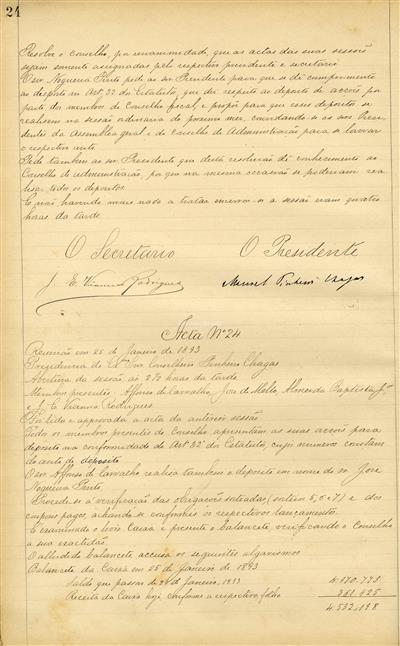 24
Resolve o conselho, por unanimidade, que as actas das suas sessões
sejam somente assignadas pelo respectivo presidente e secretario
O snr. Nogueira Pinto pede ao snr. Presidente para que se dê cumprimento
ao disposto no Artº 32 do Estatuto, que diz respeito ao deposito de acções por
parte dos membros do Conselho fiscal, e propõe para que esses depositos se
realisem na sessão ordinaria do proximo mez, convidando-se os snrs Presi-
dentes da Assemblea geral e do Conselho de Administração para se lavrar
o respectivo auto.
Pede tambem ao snr. Presidente que desta resolução dê conhecimento ao
Conselho de Administração, porque na mesma occasião se poderiam rea
lisar todos os depositos
E não havendo mais nada a tratar encerrou-se a sessão eram quatro
horas da tarde
O Secretario O Presidente
J. E. Vianna Rodrigues Manoel Pinheiro Chagas
Acta Nº 24
Reunião em 25 de Janeiro de 1893
Presidencia do Exmo Snr Conselheiro Pinheiro Chagas
Abertura da sessão ás 2½ horas da tarde
Membros presentes: Affonso de Carvalho, José de Mello, Almeida Baptista Jor
e J. E. Vianna Rodrigues
Foi lida e approvada a acta da anterior sessão
Todos os membros presentes do Conselho apresentam as suas acções para
deposito na conformidade do Artº 32º do Estatuto, cujos numeros constam
do auto de deposito
O snr. Affonso de Carvalho realisa tambem o deposito em nome do snr José
Nogueira Pinto.
Procede-se á verificação das obrigações sorteadas (sorteio 5, 6 e 7) e dos
coupons pagos, achando-se conformes os respectivos lançamentos.
É examinado o livro Caixa e presente o balancete, verificando o Conselho
a sua exactidão.
O alludido balancete accusa os seguintes algarismos
Balancete da Caixa em 25 de Janeiro de 1893
Saldo que passou de 24 de Janeiro, 1893 4.170.773
Receita da Caixa hoje conforme a respectiva folha 361.425
4.532.198